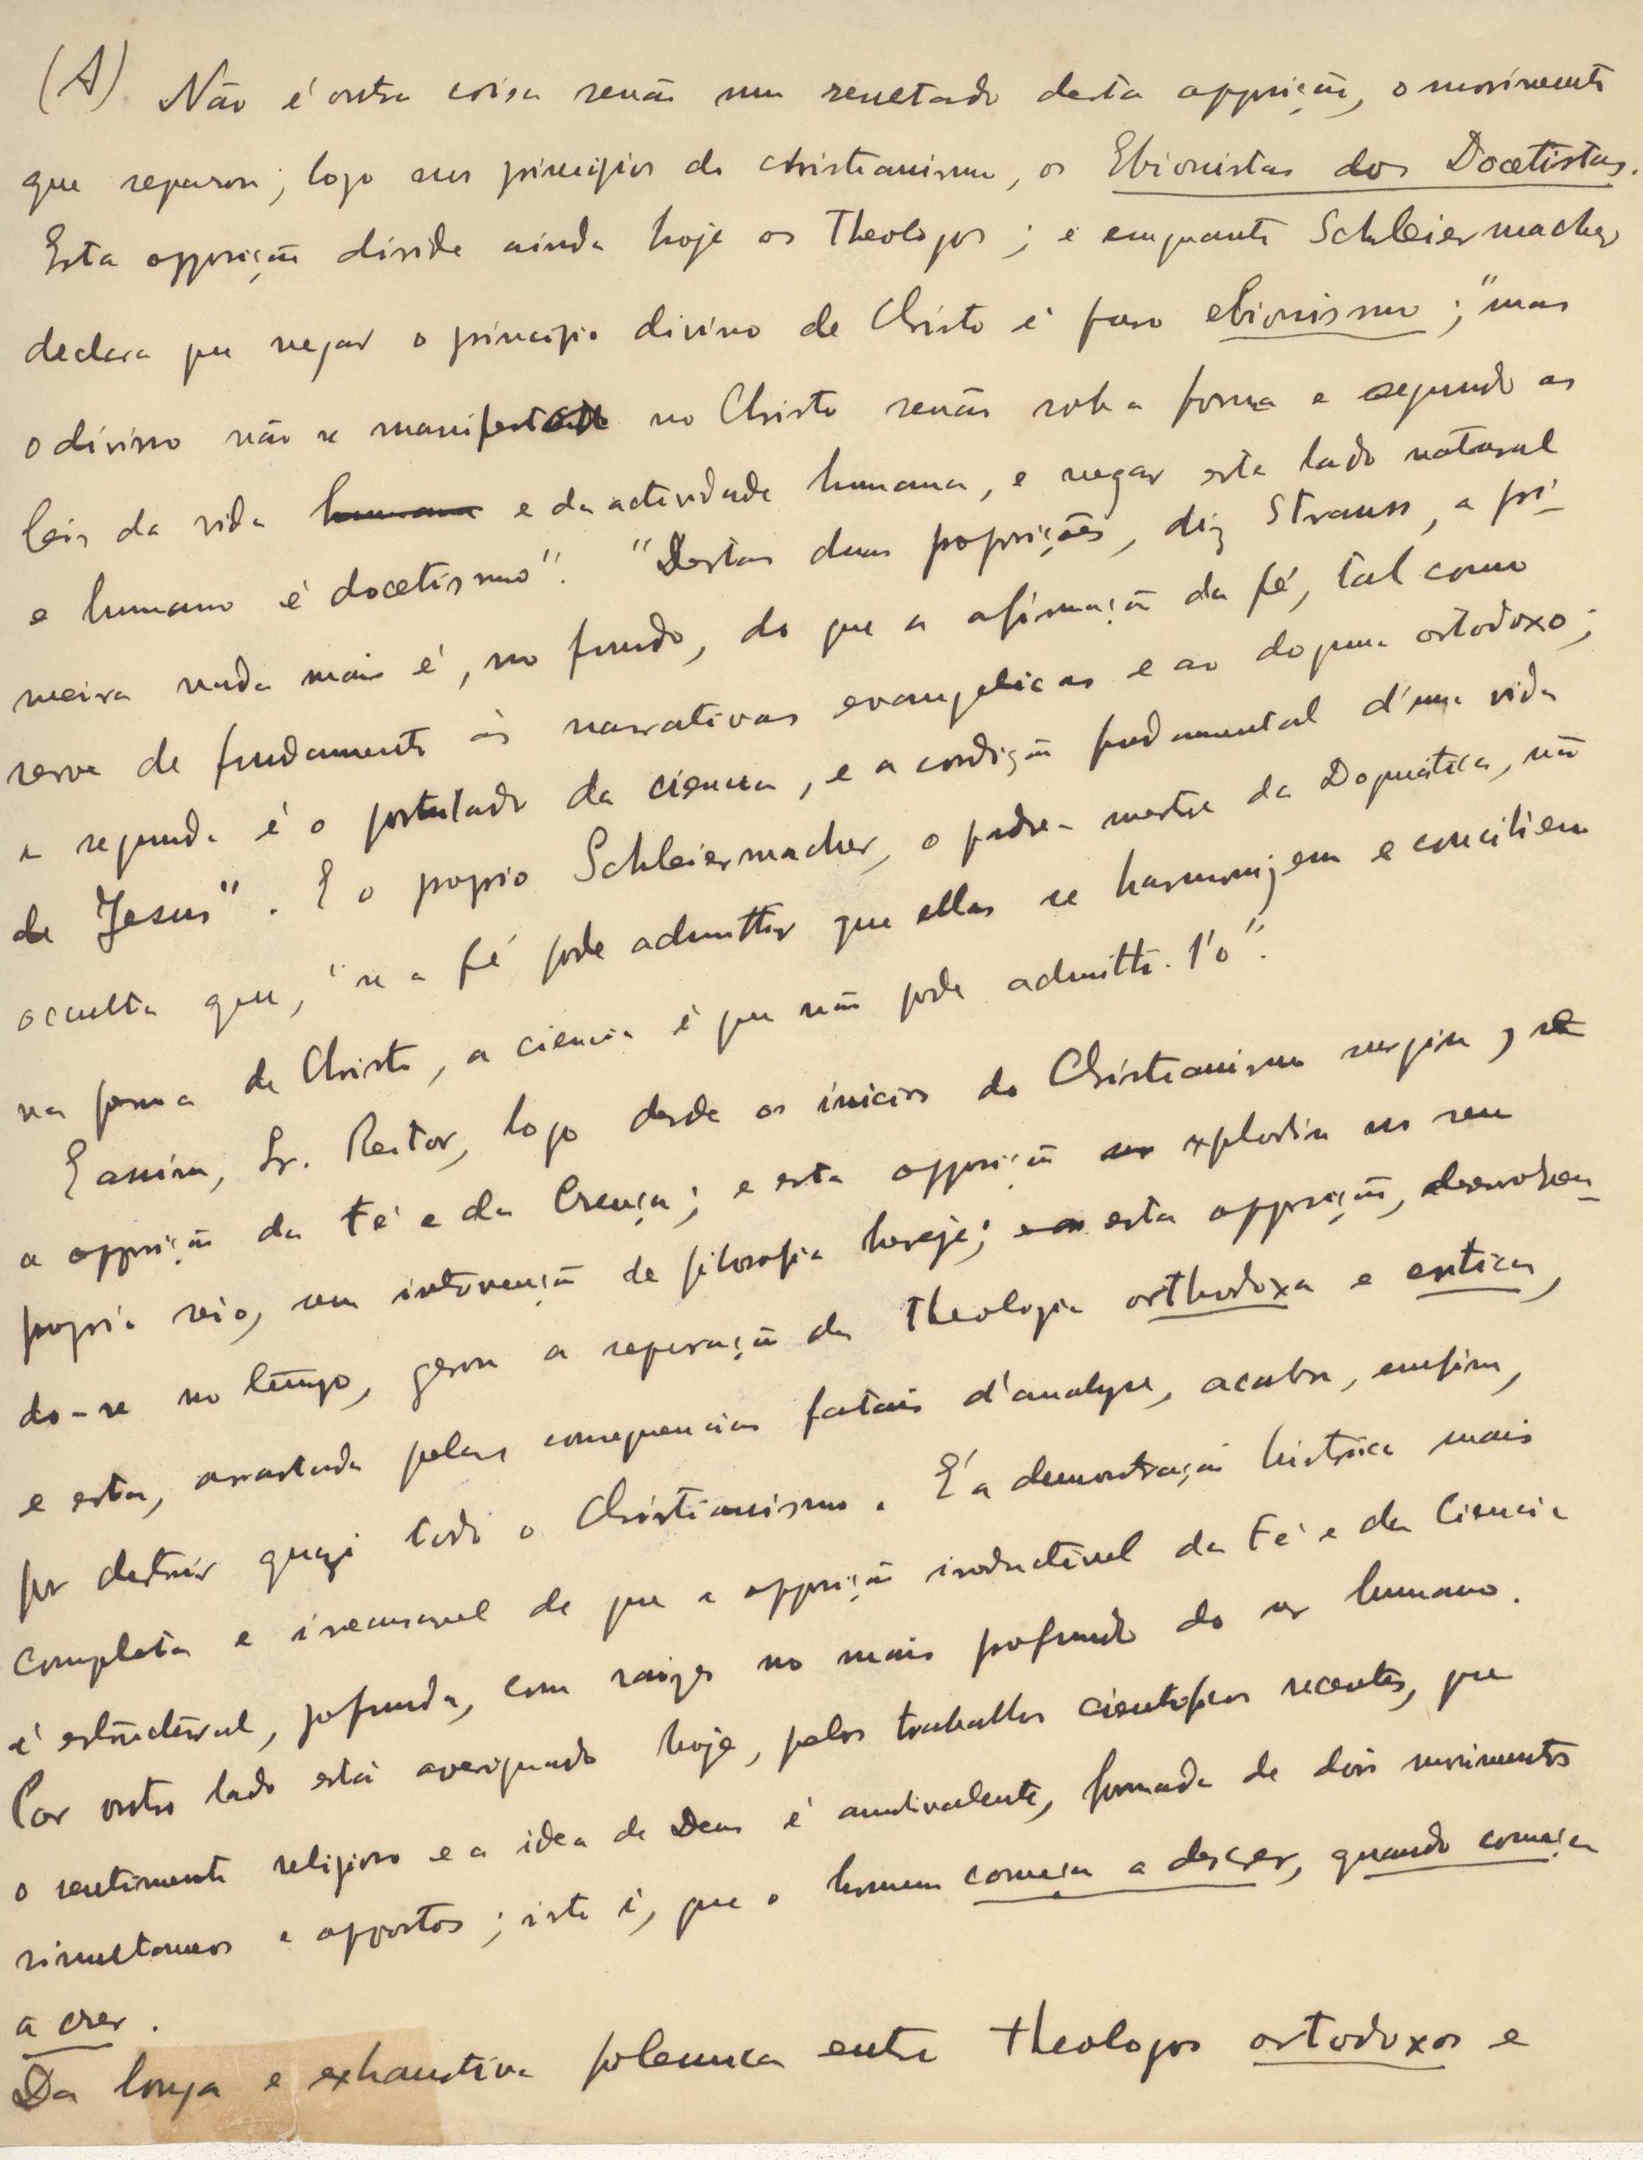 (A) Não é outra coisa senão um resultado desta opposição, o movimento
que separou, logo nos principios do christianismo, os Ebionistas dos Docetistas.
Esta opposição divide ainda hoje os Theologos; e emquanto Schleiermacher
declara que negar o principio divino de Christo é puro ebionismo; "mas
o divino não se manifesta no Christo senão sob a forma e segundo as
leis da vida humana e da actividade humana, e negar este lado natural
e humano é docetismo". "Destas duas proposições, diz Strauss, a pri-
meira nada mais é, no fundo, do que a afirmação da fé, tal como
serve de fundamento ás narrativas evangelicas e ao dogma ortodoxo;
a segunda é o postulado da ciencia, e a condição fundamental d'uma vida
de Jesus". E o proprio Schleiermacher, o padre-mestre da Dogmática, não
occulta que, "se a fé pode admittir que ellas se harmonizem e conciliem
na pessoa de Christo, a ciencia é que não pode admitti-l'o".
E assim, Sr. Reitor, logo desde os inicios do Christianismo surgiu,
a opposição da Fé e da Crença; e esta opposição explodiu no seu
proprio seio, sem intervenção de filosofia hereje; esta opposição, desenvolven-
do-se no tempo, gerou a separação da Theologia orthodoxa e critica,
e esta, arrastada pelas consequencias fatais d'analyse, acabou, emfim,
por destruir quazi todo o Christianismo. É a demonstração histórica mais
completa e irrecusavel de que a opposição irreductivel da Fé e da Ciencia
é estructural, profunda, com raizes no mais profundo do ser humano.
Por outro lado está averiguado hoje, pelos trabalhos cientificos recentes, que
o sentimento religioso e a idea de Deus é ambivalente, formada de dois movimentos
simultaneos e oppostos; isto é, que o homem começa a descrer, quando começa
a crer.
Da longa e exhaustiva polemica entre theologos ortodoxos e